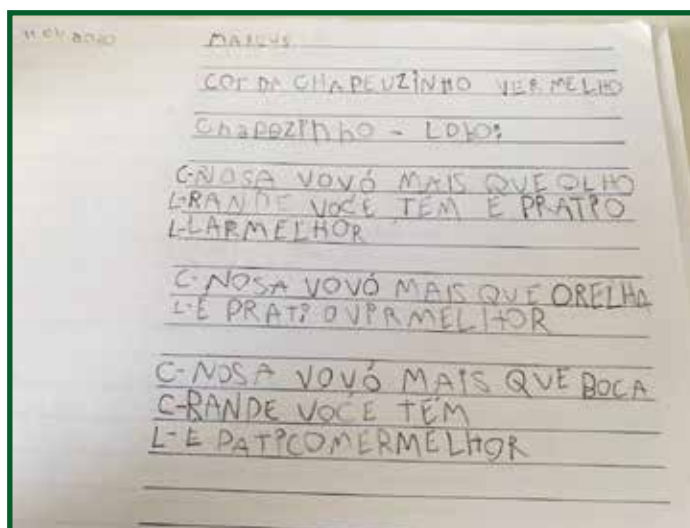 MARCUS
COR DA CHAPEUZINHO VERMELHO
ChAPEZINHO - LOBO:
C-NOSA VOVÓ MAIS QUE OLHO
L-RANDE VOCE TEM E PRATPO
L-LARMELHOR
C-NOSA VOVÓ MAIS QUE ORELHA
L-E PRATPOVPRMELHOR
C-NOSA VOVÓ MAIS QUE BOCA
C-RANDE VOCE TÉM
L-E PATPCOMERMELHOR